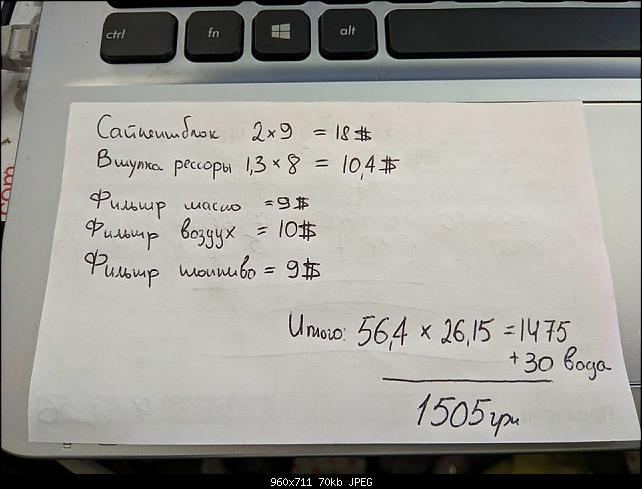 ctrl fn alt
Сайлентблок 2×9 = 18$
Втулка рессоры 1,3×8 = 10,4$
Фильтр масло =9$
Фильтр воздух = 10$
Фильтр топливо = 9$
Итого: 56,4 × 26,15 = 1475
+30 вода
1505грн
com
960x711 70kb JPEG